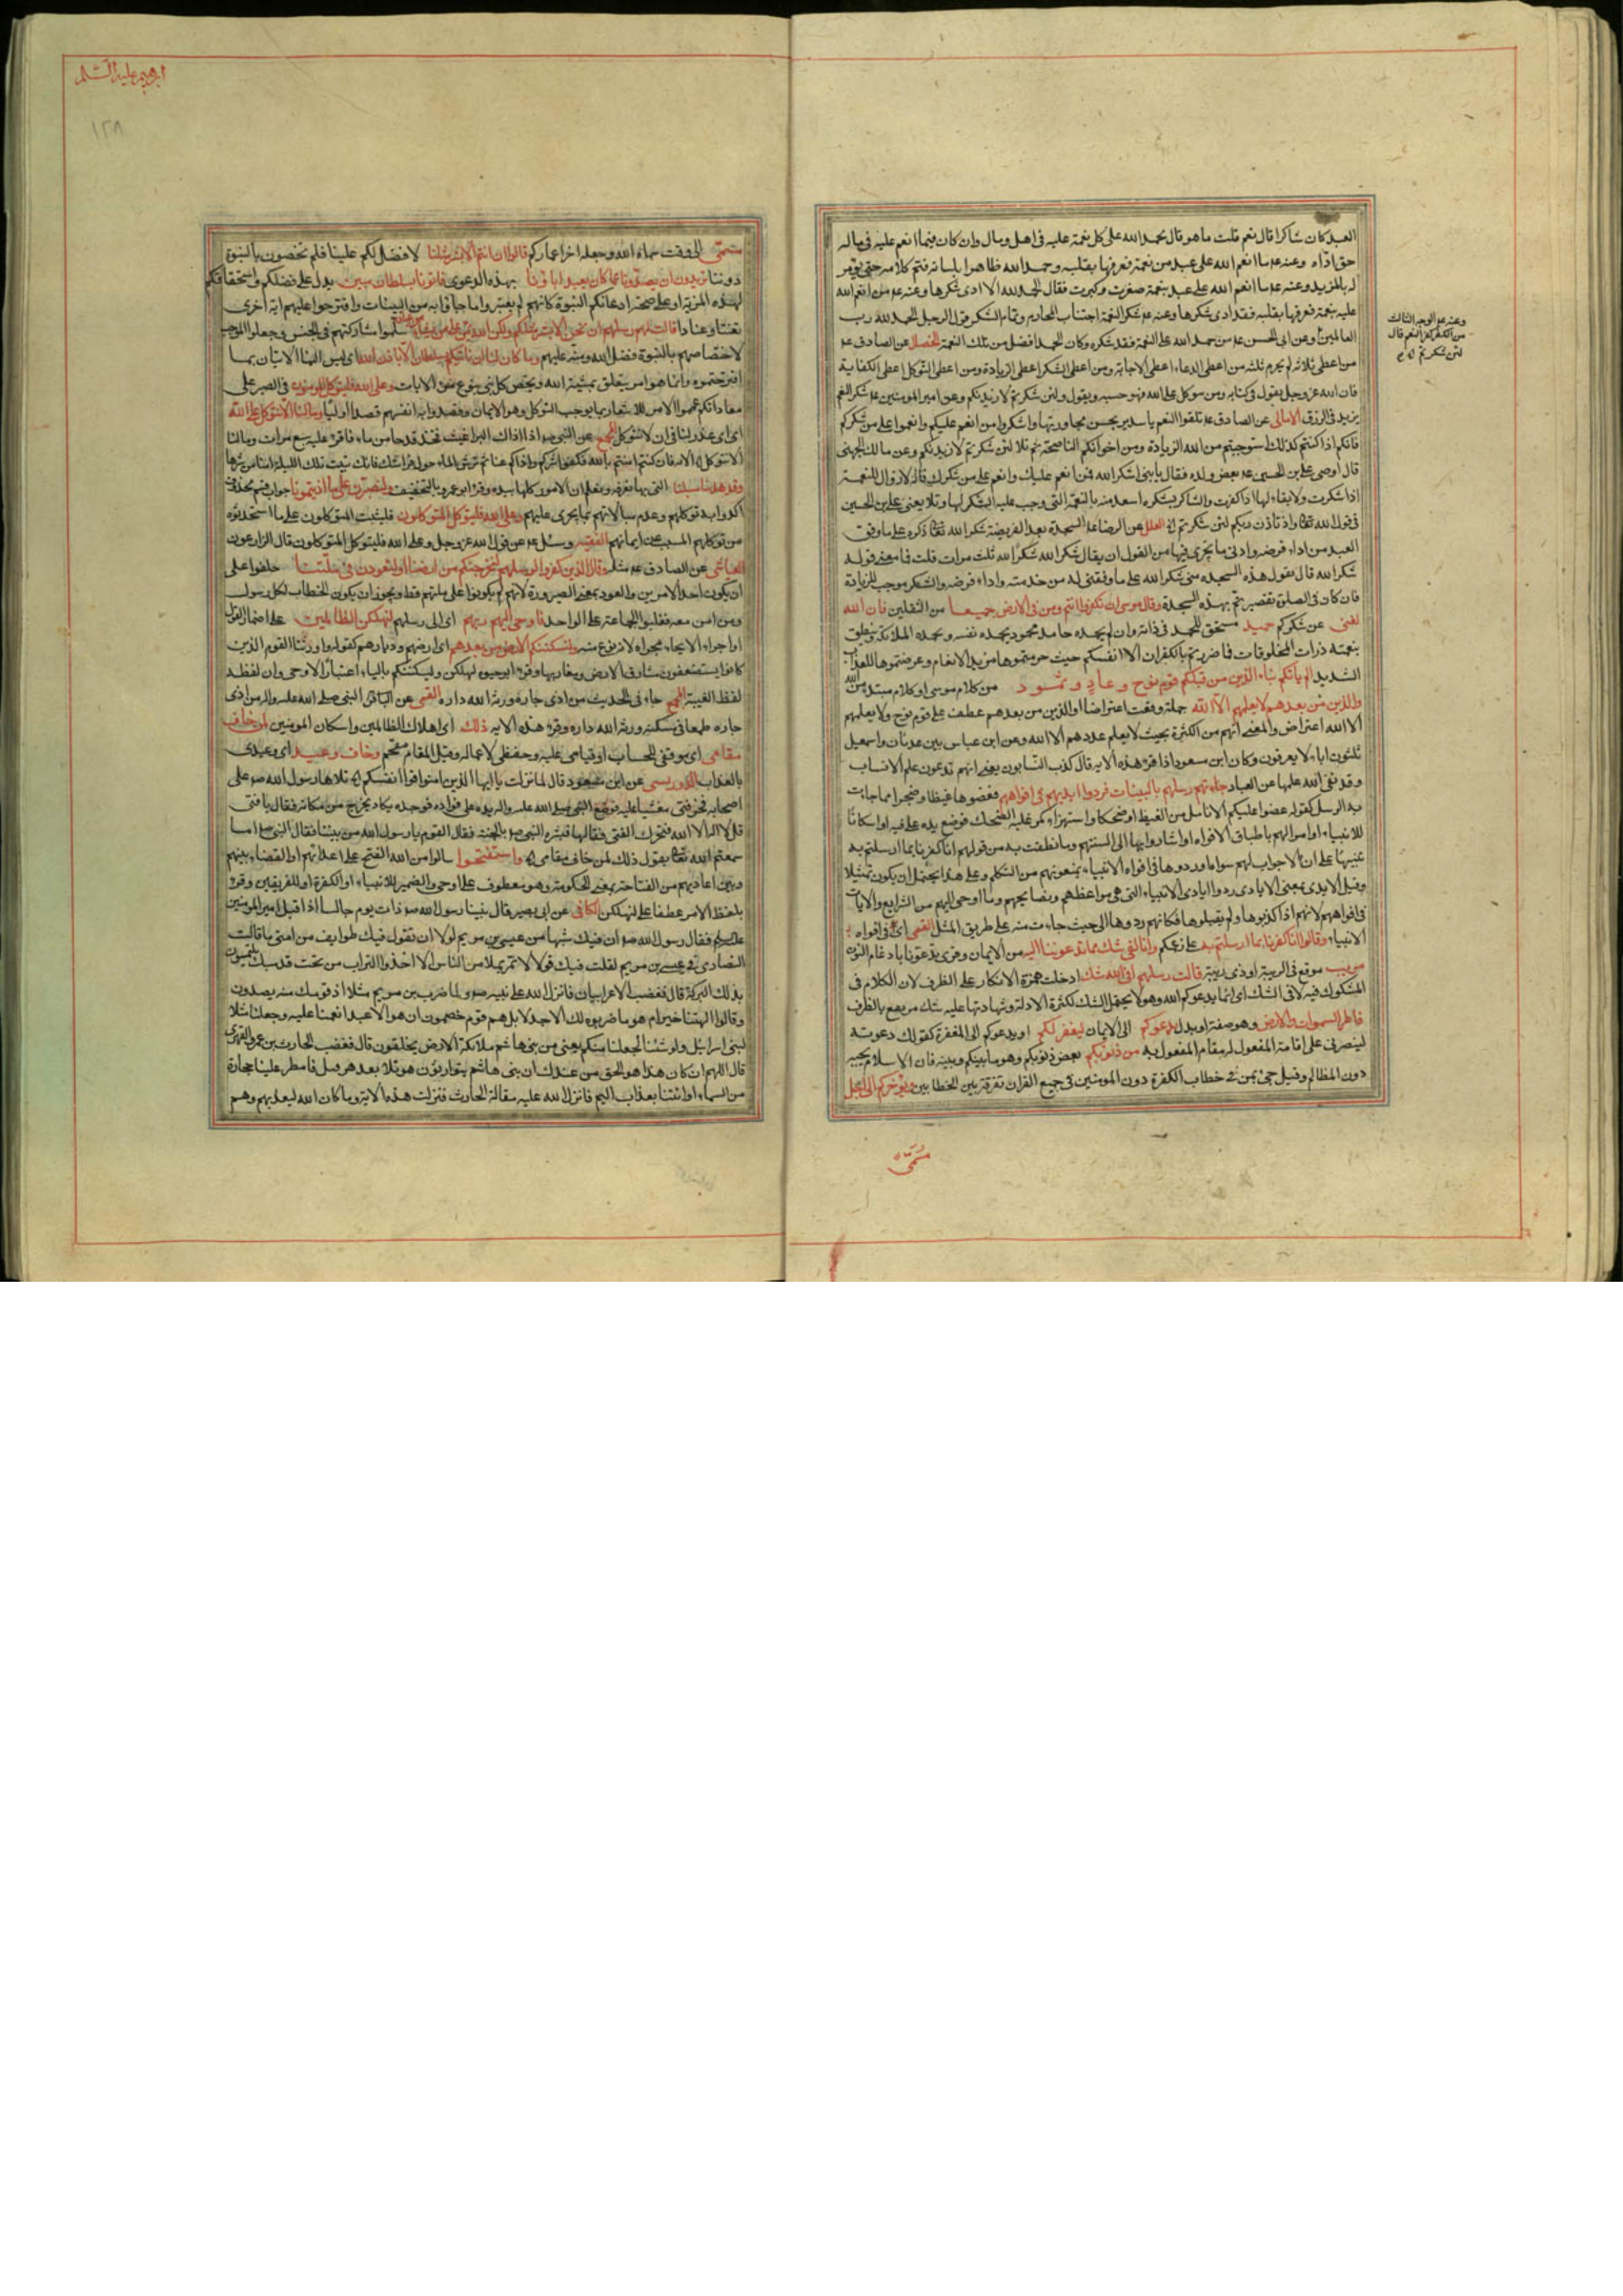 العبد كان شاكرا قال نعم قلت ما هو قال يحمد الله على كل نعمة عليه فى اهل ومال وان كان فيما انعم عليه فى ماله
حق اداه وعنه ع ما انعم الله على عبد من نعمة فعرفها بقلبه وحمد الله ظاهرا بلسانه فتم كلامه حتى يؤمر
له بالمزيد وعنه ع ما انعم الله على عبد بنعمة صغرت او كبرت فقال الحمد لله الا ادى شكرها وعنه ع من انعم الله
عليه بنعمة فعرفها بقلبه فقد ادى شكرها وعنه ع شكر النعمة اجتناب المحارم وتمام الشكر قول الرجل الحمد لله رب
العالمين وعن ابى الحسن ع من حمد الله على النعمة فقد شكره وكان الحمد افضل من تلك النعمة الخصال عن الصادق ع
من اعطى ثلاثة لم يحرم ثلثة من اعطى الدعاء اعطى الاجابة ومن اعطى الشكر اعطى الزيادة ومن اعطى التوكل اعطى الكفاية
فان الله عز وجل يقول فى كتابه ومن يتوكل على الله فهو حسبه ويقول ولئن شكرتم لازيدنكم وعن امير المومنين ع شكر النعم
يزيد فى الرزق الامالى عن الصادق ع تلقوا النعم يا سدير بحسن مجاورتها واشكروا من انعم عليكم وانعموا على من شكركم
فانكم اذا كنتم كذلك استوجبتم من الله الزيادة ومن اخوانكم المناصحة ثم تلا لئن شكرتم لازيدنكم وعن مالك الجهنى
قال اوصى على بن الحسين ع بعض ولده فقال يا بنى اشكر الله فمن انعم عليك وانعم على من شكرك فانه لا زوال للنعمة
اذا شكرت ولا بقاء لها اذا كفرت والشاكر بشكره اسعد منه بالنعمة التى وجب عليه الشكر لها وتلا يعنى على بن الحسين
فى قول الله تعالى واذ تاذن ربكم لئن شكرتم اه العلل عن الرضا ع السجدة بعد الفريضة شكرا لله تعالى ذكره على ما وفق
العبد من اداء فرضه وادنى ما يجزى فيها من القول ان يقال شكرا لله شكرا لله ثلث مرات قلت فما معنى قوله
شكرا لله قال يقول هذه السجدة منى شكرا لله على ما وفقنى له من خدمته واداء فرضه والشكر موجب للزيادة
فان كان فى الصلوة تقصير تم بهذه السجدة وقال موسى ان تكفروا انتم ومن فى الارض جميعا من الثقلين فان الله
لغنى عن شكركم حميد مستحق للحمد فى ذاته وان لم يحمده حامد محمود يحمده نفسه ويحمده الملائكة وينطق
بنعمته ذرات المخلوقات فما ضررتم بالكفران الا انفسكم حيث حرمتموها مزيد الانعام وعرضتموها للعذاب
الشديد الم ياتكم نبأ الذين من قبلكم قوم نوح وعاد وثمود من كلام موسى او كلام مبتدء من الله
والذين من بعدهم لا يعلمهم الا الله جملة وقعت اعتراضا او الذين من بعدهم عطف على قوم نوح ولا يعلمهم
الا الله اعتراض والمعنى انهم من الكثرة بحيث لا يعلم عددهم الا الله وعن ابن عباس بين عدنان واسمعيل
ثلثون ابا لا يعرفون وكان ابن مسعود اذا قرء هذه الاية قال كذب النسابون يعنى انهم تدعون علم الانساب
وقد نفى الله علمها عن العباد جاءتهم رسلهم بالبينات فردوا ايديهم فى افواههم فعضوها غيظا وضجرا مما جاءت
به الرسل كقوله عضوا عليكم الانامل من الغيظ او ضحكا واستهزاء كمن غلبه الضحك فوضع يده على فيه او اسكاتا
للانبياء او امرا لهم باطباق الافواه او اشاروا بها الى السنتهم وما نطقت به من قولهم انا كفرنا بما ارسلتم به
تنبيها على ان لا جواب لهم سواه او ردوها فى افواه الانبياء يمنعونهم من التكلم وعلى هذا يحتمل ان يكون تمثيلا
وقيل الايدى بمعنى الايادى ردوا ايادى الانبياء التى هى مواعظهم ونصايحهم وما اوحى اليهم من الشرايع والايات
فى افواههم لانهم اذا كذبوها ولم يقبلوها فكانهم ردوها الى حيث جاءت منه على طريق المثل القمى اى فى افواه
الانبياء وقالوا انا كفرنا بما ارسلتم به على زعمكم وانا لفى شك مما تدعوننا اليه من الايمان وقرى تدعونا بادغام النون
مريب موقع فى الريبة او ذى ريبة قالت رسلهم افى الله شك ادخلت همزة الانكار على الظرف لان الكلام فى
المشكوك فيه لا فى الشك اى انما يدعوكم الله وهو لا يحتمل الشك لكثرة الادلة وشهادتها عليه شك مرتفع بالظرف
فاطر السموات والارض وهو صفة او بدل يدعوكم الى الايمان ليغفر لكم او يدعوكم الى المغفرة كقولك دعوته
لينصرنى على اقامة المفعول له مقام المفعول به من ذنوبكم بعض ذنوبكم وهو ما بينكم وبينه فان الاسلام يجبه
دون المظالم وقيل جئ بمن فى خطاب الكفرة دون المومنين فى جميع القران تفرقة بين الخطابين ويؤخركم الى اجل
مسمى
وعنه ع الوجه الثالث
من الكفر كفر النعم قال
لئن شكرتم اه
ابرهيم عليه السلم
١٢٨
مسمى الى وقت سماه الله وجعله اخر اعماركم قالوا ان انتم الا بشر مثلنا لا فضل لكم علينا فلم تخصون بالنبوة
دوننا تريدون ان تصدونا عما كان يعبد اباؤنا بهذه الدعوى فاتونا بسلطان مبين يدل على فضلكم واستحقاقكم
لهذه المزية او على صحة ادعائكم النبوة كانهم لم يعتبروا ما جاؤا به من البينات واقترحوا عليهم اية اخرى
تعنتا وعنادا قالت لهم رسلهم ان نحن الا بشر مثلكم ولكن الله يمن على من يشاء من عباده سلموا مشاركتهم فى الجنس وجعلوا الموجب
لاختصاصهم بالنبوة فضل الله ومنه عليهم وما كان لنا ان ناتيكم بسلطان الا باذن الله اى ليس الينا الاتيان بما
اقترحتموه وانما هو امر يتعلق بمشية الله ويختص كل نبى بنوع من الايات وعلى الله فليتوكل المومنون فى الصبر على
معاداتكم عمموا الامر للاشعار بما يوجب التوكل وهو الايمان وقصدوا به انفسهم قصدا اوليا وما لنا الا نتوكل على الله
اى اى عذر لنا فى ان لا نتوكل المجمع عن النبى ص اذا اذاك البراغيث فخذ قدحا من ماء فاقرء عليه سبع مرات وما لنا
الا نتوكل اه الاية فان كنتم امنتم بالله فكفوا شركم واذاكم عنا ثم ترش الماء حول فراشك فانك تبيت تلك الليلة امنا من شرها
وقد هدينا سبلنا التى بها نعرفه ونعلم ان الامور كلها بيده وقرء ابو عمرو بالتخفيف ولنصبرن على ما اذيتمونا جواب قسم محذوف
اكدوا به توكلهم وعدم مبالاتهم بما يجرى عليهم وعلى الله فليتوكل المتوكلون فليثبت المتوكلون على ما استحدثوه
من توكلهم المسبب عن ايمانهم الفقيه وسئل ع عن قول الله عز وجل وعلى الله فليتوكل المتوكلون قال الزارعون
العياشى عن الصادق ع مثله وقال الذين كفروا لرسلهم لنخرجنكم من ارضنا او لتعودن فى ملتنا حلفوا على
ان يكون احد الامرين والعود بمعنى الصيرورة لانهم لم يكونوا على ملتهم قط ويجوز ان يكون الخطاب لكل رسول
ومن امن معه فغلبوا الجماعة على الواحد فاوحى اليهم ربهم اى الى رسلهم لنهلكن الظالمين على اضمار القول
او اجراء الايحاء مجراه لانه نوع منه ولنسكننكم الارض من بعدهم اى ارضهم وديارهم كقوله واورثنا القوم الذين
كانوا يستضعفون مشارق الارض ومغاربها وقرء ابو حيوه ليهلكن وليسكننكم بالياء اعتبارا لاوحى وان لفظه
لفظ الغيبة المجمع جاء فى الحديث من اذى جاره ورثه الله داره القمى عن الباقر النبى صلى الله عليه واله من اذى
جاره طمعا فى مسكنه ورثه الله داره وقرء هذه الاية ذلك اى اهلاك الظالمين واسكان المومنين لمن خاف
مقامى اى موقفى للحساب او قيامى عليه وحفظى لاعماله وقيل المقام مقحم وخاف وعيد اى وعيدى
بالعذاب الدوريستى عن ابن مسعود قال لما نزلت يا ايها الذين امنوا قوا انفسكم اه تلاها رسول الله ص على
اصحابه فخر فتى مغشيا عليه فوضع النبى صلى الله عليه واله يده على فؤاده فوجده يكاد يخرج من مكانه فقال يا فتى
قل لا اله الا الله فتحرك الفتى فقالها فبشره النبى ص بالجنة فقال القوم يا رسول الله من بيننا فقال النبى ص اما
سمعتم الله تعالى يقول ذلك لمن خاف مقامى اه واستفتحوا سالوا من الله الفتح على اعدائهم او القضاء بينهم
وبين اعاديهم من الفتاحة بمعنى الحكومة وهو معطوف على اوحى والضمير للانبياء او الكفرة او للفريقين وقرء
بلفظ الامر عطفا على لنهلكن الكافى عن ابى بصير قال بينا رسول الله ص ذات يوم جالسا اذا قبل امير المومنين
عليه السلم فقال رسول الله ص ان فيك شبها من عيسى بن مريم لولا ان تقول فيك طوايف من امتى ما قالت
النصارى فى عيسى بن مريم لقلت فيك قولا لا تمر بملا من الناس الا اخذوا التراب من تحت قدميك يلتمسون
بذلك البركة قال فغضب الاعرابيان فانزل الله على نبيه ص ولما ضرب بن مريم مثلا اذا قومك منه يصدون
وقالوا الهتنا خير ام هو ما ضربوه لك الا جدلا بل هم قوم خصمون ان هو الا عبد انعمنا عليه وجعلناه مثلا
لبنى اسرائيل ولو نشاء لجعلنا منكم يعنى من بنى هاشم ملائكة فى الارض يخلفون قال فغضب الحارث بن عمرو الفهرى
قال اللهم ان كان هذا هو الحق من عندك ان بنى هاشم يتوارثون هرقلا بعد هرقل فامطر علينا حجارة
من السماء او ائتنا بعذاب اليم فانزل الله عليه مقالة الحارث فنزلت هذه الاية وما كان الله ليعذبهم وهم